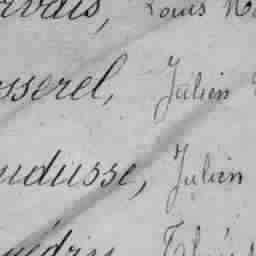 rvais, Louis
sserel, Julien
udusse, Julien